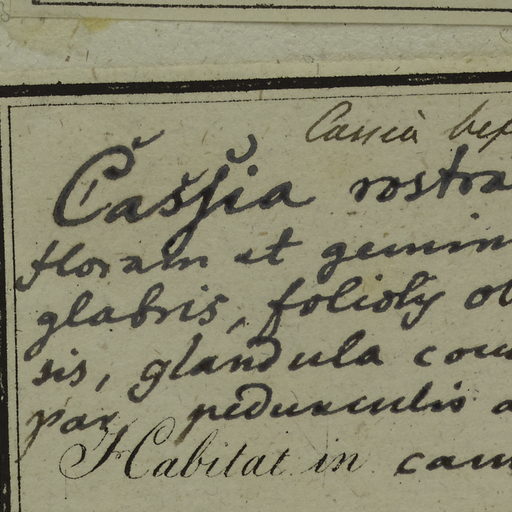 Cassia
Cassia rostra
floram et gemin
glabris, foliolis ob
sis, glandula
par pedunculis a
Habitat in cam